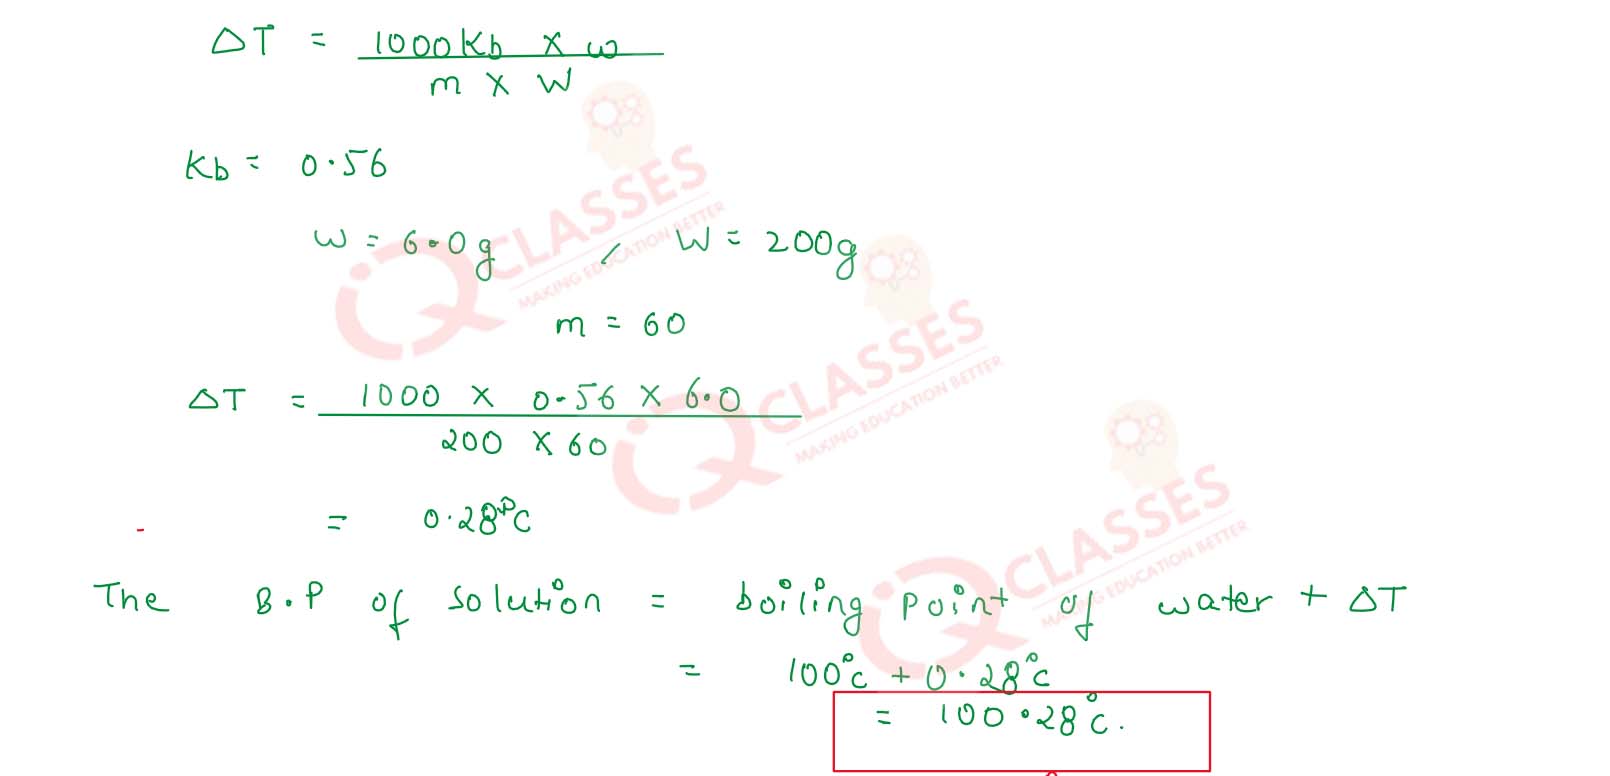 ΔT = 1000Kb × w
m × W
Kb = 0.56
w = 6.0g , W = 200g
m = 60
ΔT = 1000 × 0.56 × 6.0
200 × 60
= 0.28°C
The B.P of solution = boiling point of water + ΔT
= 100°C + 0.28°C
= 100.28°C.
iQ CLASSES
MAKING EDUCATION BETTER
iQ CLASSES
MAKING EDUCATION BETTER
iQ CLASSES
MAKING EDUCATION BETTER